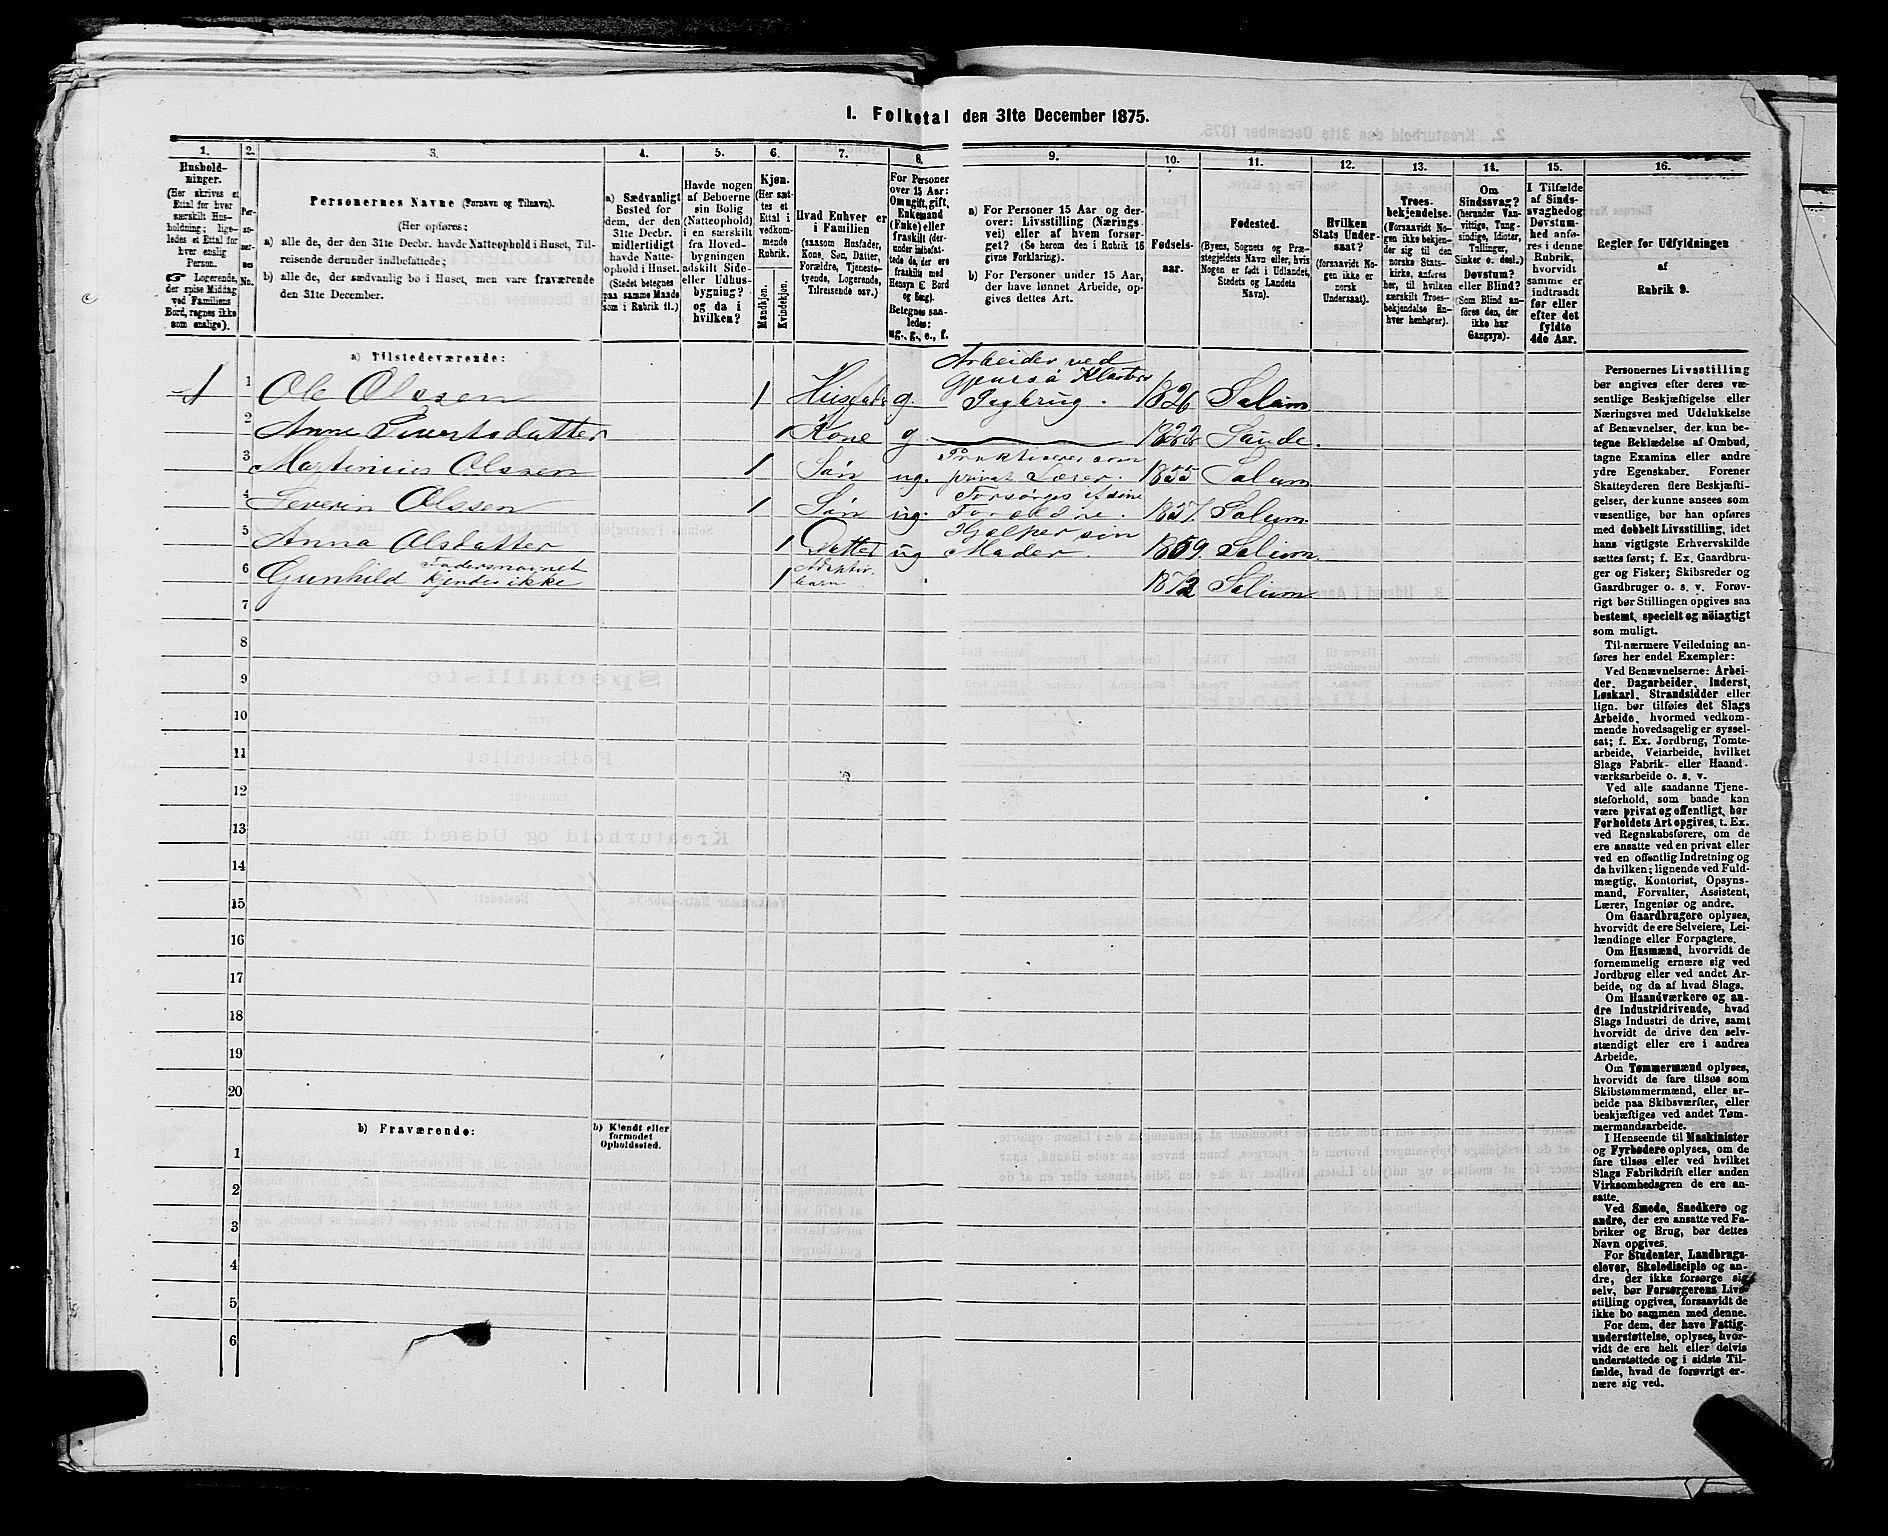 1. Folketal den 31te December 1875.
1. 2. 3. 4. 5. 6. 7. 8. 9. 10. 11. 12. 13. 14. 15. 16.
Hushold-
ninger.
(Her skrives et
Ettal for hver
særskilt Hus-
holdning; lige-
ledes et Ettal for
hver enslig
Person.
☞ Logerende,
der spise Middag
ved Familiens
Bord, regnes ikke
som enslige).
Per-
so-
ner-
nes
No.
Personernes Navne (Fornavn og Tilnavn).
(Her opføres:
a) alle de, der den 31te Decbr. havde Natteophold i Huset, Til-
reisende derunder indbefattede;
b) alle de, der sædvanlig bo i Huset, men vare fraværende
den 31te December.
a) Sædvanligt
Bosted for
dem, der den
31te Decbr.
midlertidigt
havde Natte-
ophold i Huset.
(Stedet betegnes
paa samme Maade
som i Rubrik 11.)
Havde nogen
af Beboerne
sin Bolig
(Natteophold)
i en særskilt
fra Hoved-
bygningen
adskilt Side-
eller Udhus-
bygning?
og da i
hvilken?
Kjøn.
(Her sæt-
tes et
Ettal i
vedkom-
mende
Rubrik.
Mandkjøn.
Kvindekjøn.
Hvad Enhver er
i Familien
(saasom Husfader,
Kone, Søn, Datter,
Forældre, Tjeneste-
tyende, Logerende,
Tilreisende osv.)
For Personer
over 15 Aar:
Om ugift, gift,
Enkemand
(Enke) eller
fraskilt (der-
under indbefat-
tede de, der ere
fraskilte med
Hensyn til Bord
og Seng).
Betegnes saa-
ledes:
ug., g., e., f.
a) For Personer 15 Aar og der-
over: Livsstilling (Nærings-
vei) eller af hvem forsør-
get? (Se herom den i Rubrik 16
givne Forklaring).
b) For Personer under 15 Aar,
der have lønnet Arbeide, op-
gives dettes Art.
Fødsels-
aar.
Fødested.
(Byens, Sognets og Præ-
stegjeldets Navn eller, hvis
Nogen er født i Udlandet,
Stedets og Landets
Navn).
Hvilken
Stats Under-
saat?
(forsaavidt No-
gen ikke er
norsk
Undersaat).
Troes-
bekjendelse.
(Forsaavidt No-
gen ikke bekjen-
der sig til den
norske Stats-
kirke, anføres
her, til hvilken
særskilt Troes-
bekjendelse En-
hver henhører).
Om
Sindssvag?
(herunder Van-
vittige, Tung-
sindige, Idioter,
Tullinger,
Sinker o. desl.)
Døvstum?
eller Blind?
(Som Blind an-
føres den, der
ikke har
Gangsyn).
I Tilfælde
af Sinds-
svaghed og
Døvstum-
hed anfø-
res i denne
Rubrik,
hvorvidt
samme er
indtraadt
før eller
efter det
fyldte
4de Aar.
Regler for Udfyldningen
af
Rubrik 9.
a) Tilstedeværende:
1 1 Ole Olssen 1 Husfader g. Arbeider ved Klosters Teglbrug. 1826 Solum
2 Anne Sivertsdatter 1 Kone g 1822 Sande.
3 Martinius Olssen 1 Søn ug. som privat Læser. 1855 Solum
4 Severin Olssen 1 Søn ug. Forsørges af sine Forældre. 1857. Solum.
5 Anna Olsdatter 1 Datter ug Hjælper sin Moder. 1859. Solum.
6 Gunhild Fadersnavnet kjendes ikke 1 Adoptiv-barn 1872 Solum
7
8
9
10
11
12
13
14
15
16
17
18
19
20
b) Fraværende:
b) Kjendt eller
formodet
Opholdssted.
1
2
3
4
5
6
Personernes Livsstilling
bør angives efter deres væ-
sentlige Beskjæftigelse eller
Næringsvei med Udelukkelse
af Benævnelser, der kun be-
tegne Beklædelse af Ombud,
tagne Examina eller andre
ydre Egenskaber. Forener
Skatteyderen flere Beskjæfti-
gelser, der kunne ansees som
væsentlige, bør han opføres
med dobbelt Livsstilling, idet
hans vigtigste Erhvervskilde
sættes først; f. Ex. Gaardbru-
ger og Fisker; Skibsreder og
Gaardbruger o. s. v. Forøv-
rigt bør Stillingen opgives saa
bestemt, specielt og nöiagtigt
som muligt.
Til nærmere Veiledning an-
føres her endel Exempler:
Ved Benævnelserne: Arbei-
der, Dagarbeider, Inderst,
Løskarl, Strandsidder eller
lign. bør tilføies det Slags
Arbeide, hvormed vedkom-
mende hovedsagelig er syssel-
sat; f. Ex. Jordbrug, Tomte-
arbeide, Veiarbeide, hvilket
Slags Fabrik- eller Haand-
værksarbeide o. s. v.
Ved alle saadanne Tjene-
steforhold, som baade kan
være privat og offentligt, bør
Forholdets Art opgives, t. Ex.
ved Regnskabsførere, om de
ere ansatte ved en privat eller
ved en offentlig Indretning og
da hvilken; lignende ved Fuld-
mægtig, Kontorist, Opsyns-
mand, Forvalter, Assistent,
Lærer, Ingeniør og andre.
Om Gaardbrugere oplyses,
hvorvidt de ere Selveiere, Lei-
lændinge eller Forpagtere.
Om Husmænd, hvorvidt de
fornemmelig ernære sig ved
Jordbrug eller ved andet Ar-
beide, og da af hvad Slags.
Om Haandværkere og an-
dre Industridrivende, hvad
Slags Industri de drive, samt
hvorvidt de drive den selv-
stændigt eller ere i andres
Arbeide.
Om Tømmermænd oplyses,
hvorvidt de fare tilsøs som
Skibstømmermænd, eller ar-
beide paa Skibsværfter, eller
beskjæftiges ved andet Tøm-
mermandsarbeide.
I Henseende til Maskinister
og Fyrbødere oplyses, om de
fare tilsøs eller ved hvilket
Slags Fabrikdrift eller anden
Virksomhedsgren de ere an-
satte.
Ved Smede, Snedkere og
andre, der ere ansatte ved Fa-
briker og Brug, bør dettes
Navn opgives.
For Studenter, Landbrugs-
elever, Skoledisciple og an-
dre, der ikke forsørge sig
selv, bør Forsørgerens Livs-
stilling opgives, forsaavidt de
ikke bo sammen med denne.
For dem, der have Fattig-
understøttelse, oplyses, hvor-
vidt de ere helt eller delvis
understøttede og i sidste Til-
fælde, hvad de forøvrigt er-
nære sig ved.